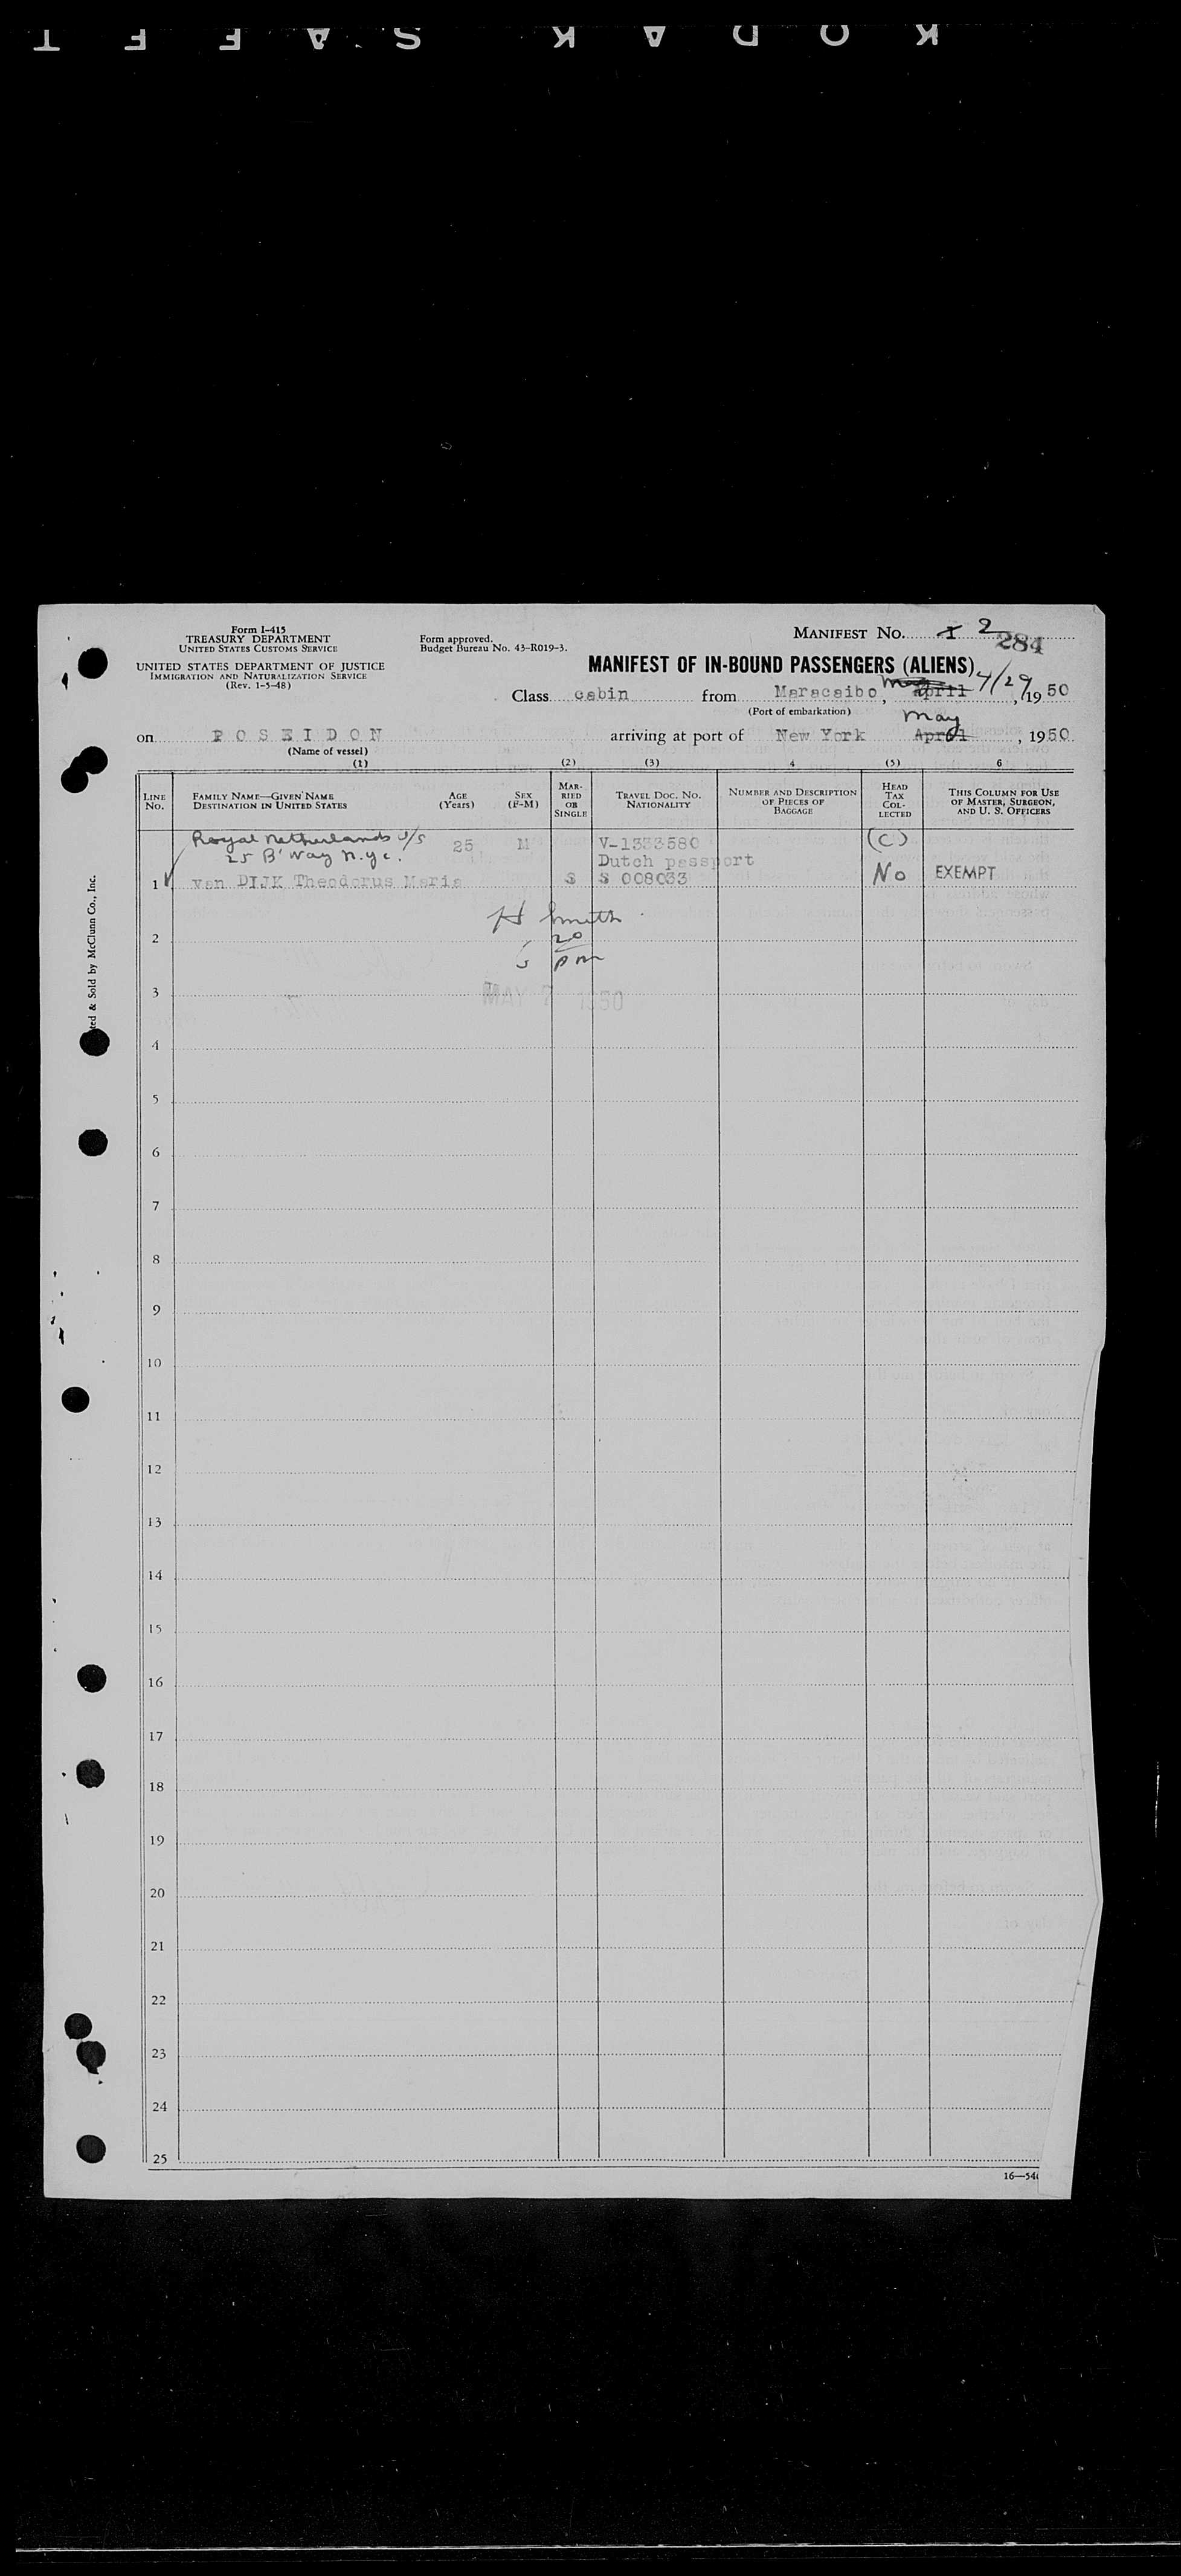 KODAK SAFET
Form I-415
TREASURY DEPARTMENT
UNITED STATES CUSTOMS SERVICE
UNITED STATES DEPARTMENT OF JUSTICE
IMMIGRATION AND NATURALIZATION SERVICE
(Rev. 1-5-48)
Form approved.
Budget Bureau No. 43-R019-3.
MANIFEST No. 1 2
284
MANIFEST OF IN-BOUND PASSENGERS (ALIENS)
Class cabin from Maracaibo, May April 4/29, 1950
(Port of embarkation)
on POSEIDON arriving at port of New York April May, 1950
(Name of vessel)
(1) (2) (3) 4 (5) 6
LINE No.
FAMILY NAME—GIVEN NAME
DESTINATION IN UNITED STATES
AGE (Years)
SEX (F-M)
MARRIED OR SINGLE
TRAVEL DOC. NO. NATIONALITY
NUMBER AND DESCRIPTION OF PIECES OF BAGGAGE
HEAD TAX COLLECTED
THIS COLUMN FOR USE OF MASTER, SURGEON, AND U. S. OFFICERS
Royal Netherlands S/S 25 M V-1333580 (C)
25 B'Way N.Y.C. Dutch passport
1 van DIJK Theodorus Maria S S 008033 No EXEMPT
H Smith
2 20
5 pm
3 MAY 7 1950
4
5
6
7
8
9
10
11
12
13
14
15
16
17
18
19
20
21
22
23
24
25
ted & Sold by McClunn Co., Inc.